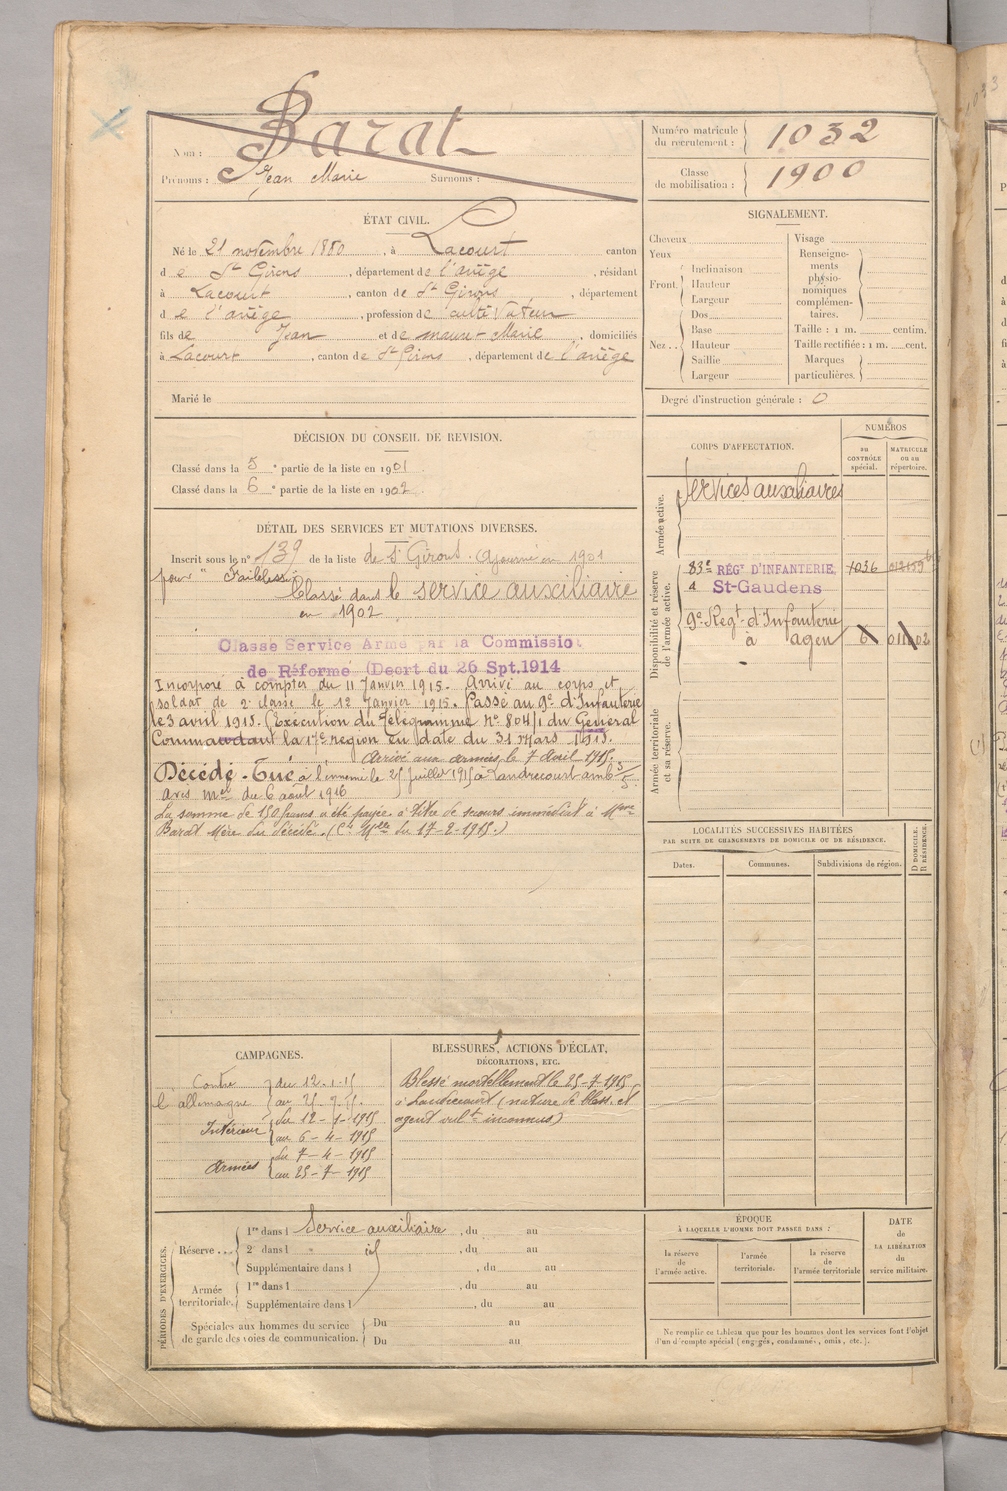 Nom : Barat
Prénoms : Jean Marie Surnoms :
Numéro matricule du recrutement : 1032
Classe de mobilisation : 1900
ÉTAT CIVIL.
Né le 21 novembre 1880, à Lacourt canton
de St Girons, département de l'ariège, résidant
à Lacourt, canton de St Girons, département
de l'ariège, profession de cultivateur
fils de Jean et de maurt Marie, domiciliés
à Lacourt, canton de St Girons, département de l'ariège
Marié le
SIGNALEMENT.
Cheveux
Yeux
Front. Inclinaison
Hauteur
Largeur
Nez.. Dos
Base
Hauteur
Saillie
Largeur
Visage
Renseignements physionomiques complémentaires.
Taille : 1 m. centim.
Taille rectifiée : 1 m. cent.
Marques particulières.
Degré d'instruction générale : 0
DÉCISION DU CONSEIL DE REVISION.
Classé dans la 5e partie de la liste en 1901.
Classé dans la 6e partie de la liste en 1902.
DÉTAIL DES SERVICES ET MUTATIONS DIVERSES.
Inscrit sous le n° 139 de la liste de St Girons. Ajourné en 1901
pour "Faiblesse"
Classé dans le service auxiliaire
en 1902
Classe Service Armé par la Commission
de Réforme (Decrt du 26 Spt. 1914
Incorporé à compter du 11 Janvier 1915. Arrivé au corps et
soldat de 2e classe le 12 Janvier 1915. Passé au 9e d'Infanterie
le 3 avril 1915. (Exécution du Télégramme N° 804/1 du Général
Commandant la 17e region en date du 31 Mars 1915.
Arrivé aux armées le 7 Avril 1915.
Décédé - Tué à l'ennemi le 25 Juillet 1915 à Landrecourt
avis mel du 6 aout 1916
La somme de 150 francs a été payée à titre de secours immédiat à Mme
Barat Mère du décédé. (Cle Mlle du 17-2-1915.)
CORPS D'AFFECTATION.
NUMÉROS
au CONTRÔLE spécial.
MATRICULE ou au répertoire.
Armée active.
Services auxiliaires
Disponibilité et réserve de l'armée active.
83e RÉGt D'INFANTERIE 1036
à St-Gaudens
9e Regt d'Infanterie
à agen 6
Armée territoriale et sa réserve.
LOCALITÉS SUCCESSIVES HABITÉES
PAR SUITE DE CHANGEMENTS DE DOMICILE OU DE RÉSIDENCE.
Dates.
Communes.
Subdivisions de région.
D DOMICILE.
R RÉSIDENCE.
CAMPAGNES.
Contre l'allemagne du 12-1-15
au 25-7-15
Intérieur du 12-1-1915
au 6-4-1915
Armées du 7-4-1915
au 25-7-1915
BLESSURES, ACTIONS D'ÉCLAT,
DÉCORATIONS, ETC.
Blessé mortellement le 25-7-1915
à Landrecourt (nature de bless. et
agent vult inconnus)
PÉRIODES D'EXERCICES.
Réserve... 1re dans l Service auxiliaire, du au
2e dans l " id, du au
Supplémentaire dans l, du au
Armée territoriale. 1re dans l, du au
Supplémentaire dans l, du au
Spéciales aux hommes du service de garde des voies de communication. Du au
Du au
ÉPOQUE
À LAQUELLE L'HOMME DOIT PASSER DANS :
la réserve de l'armée active.
l'armée territoriale.
la réserve de l'armée territoriale
DATE
de
LA LIBÉRATION
du
service militaire.
Ne remplir ce tableau que pour les hommes dont les services font l'objet
d'un décompte spécial (engagés, condamnés, omis, etc.).